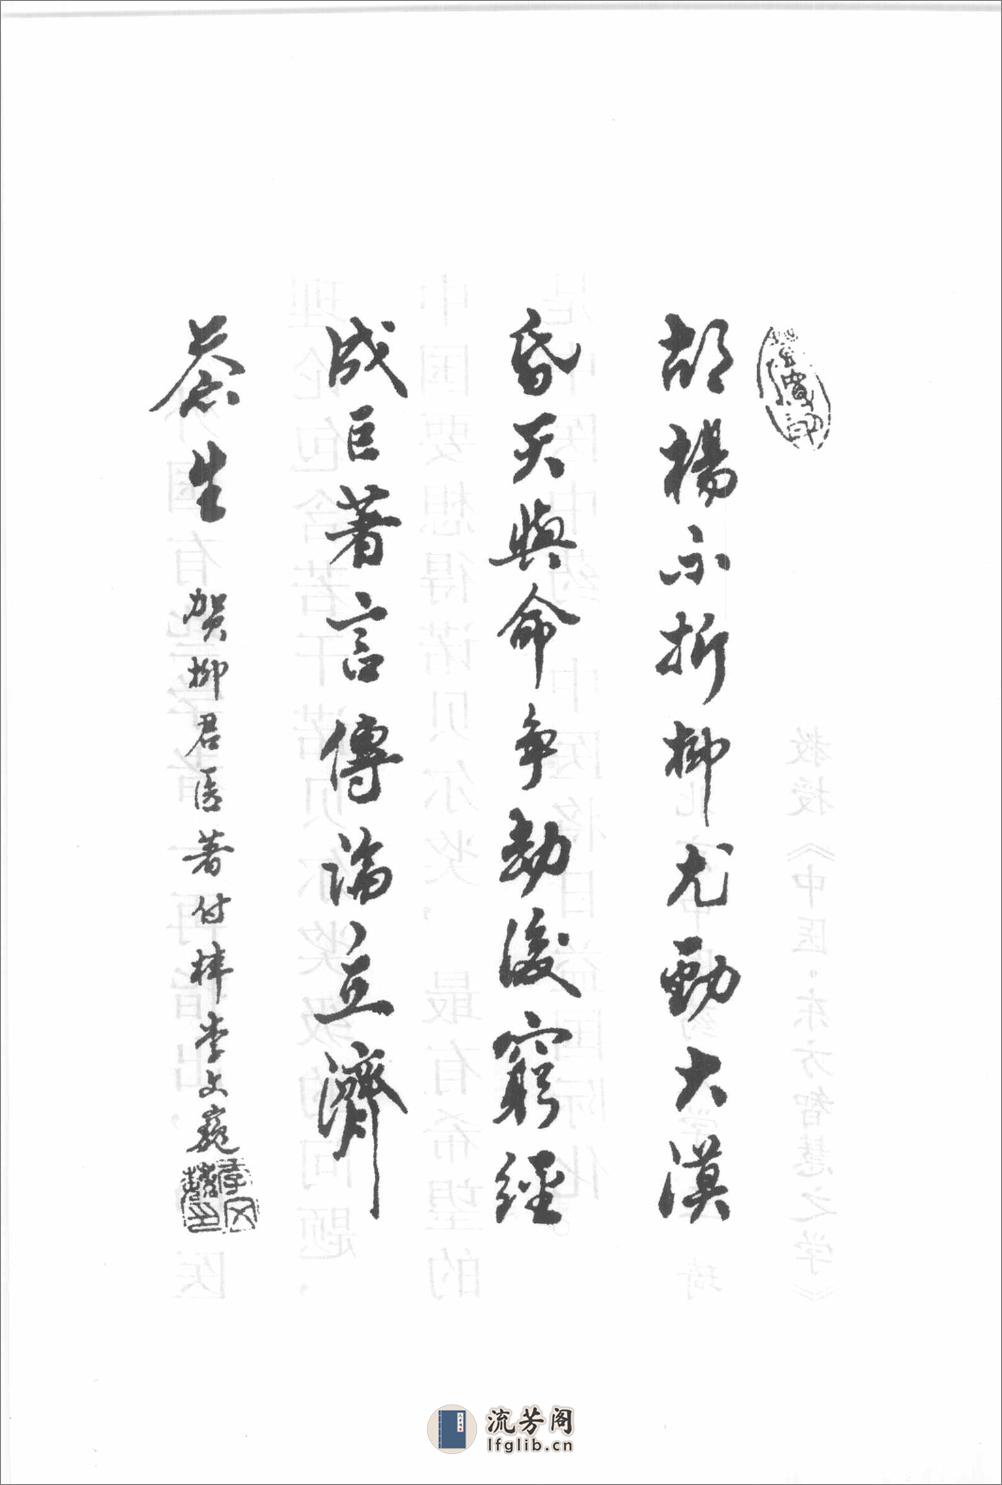 胡楊不折柳尤勁大漠
昏天與命争劫後窮經
成巨著言傳論立濟
蒼生
贺柳君医著付梓李文巍
流芳阁
lfglib.cn